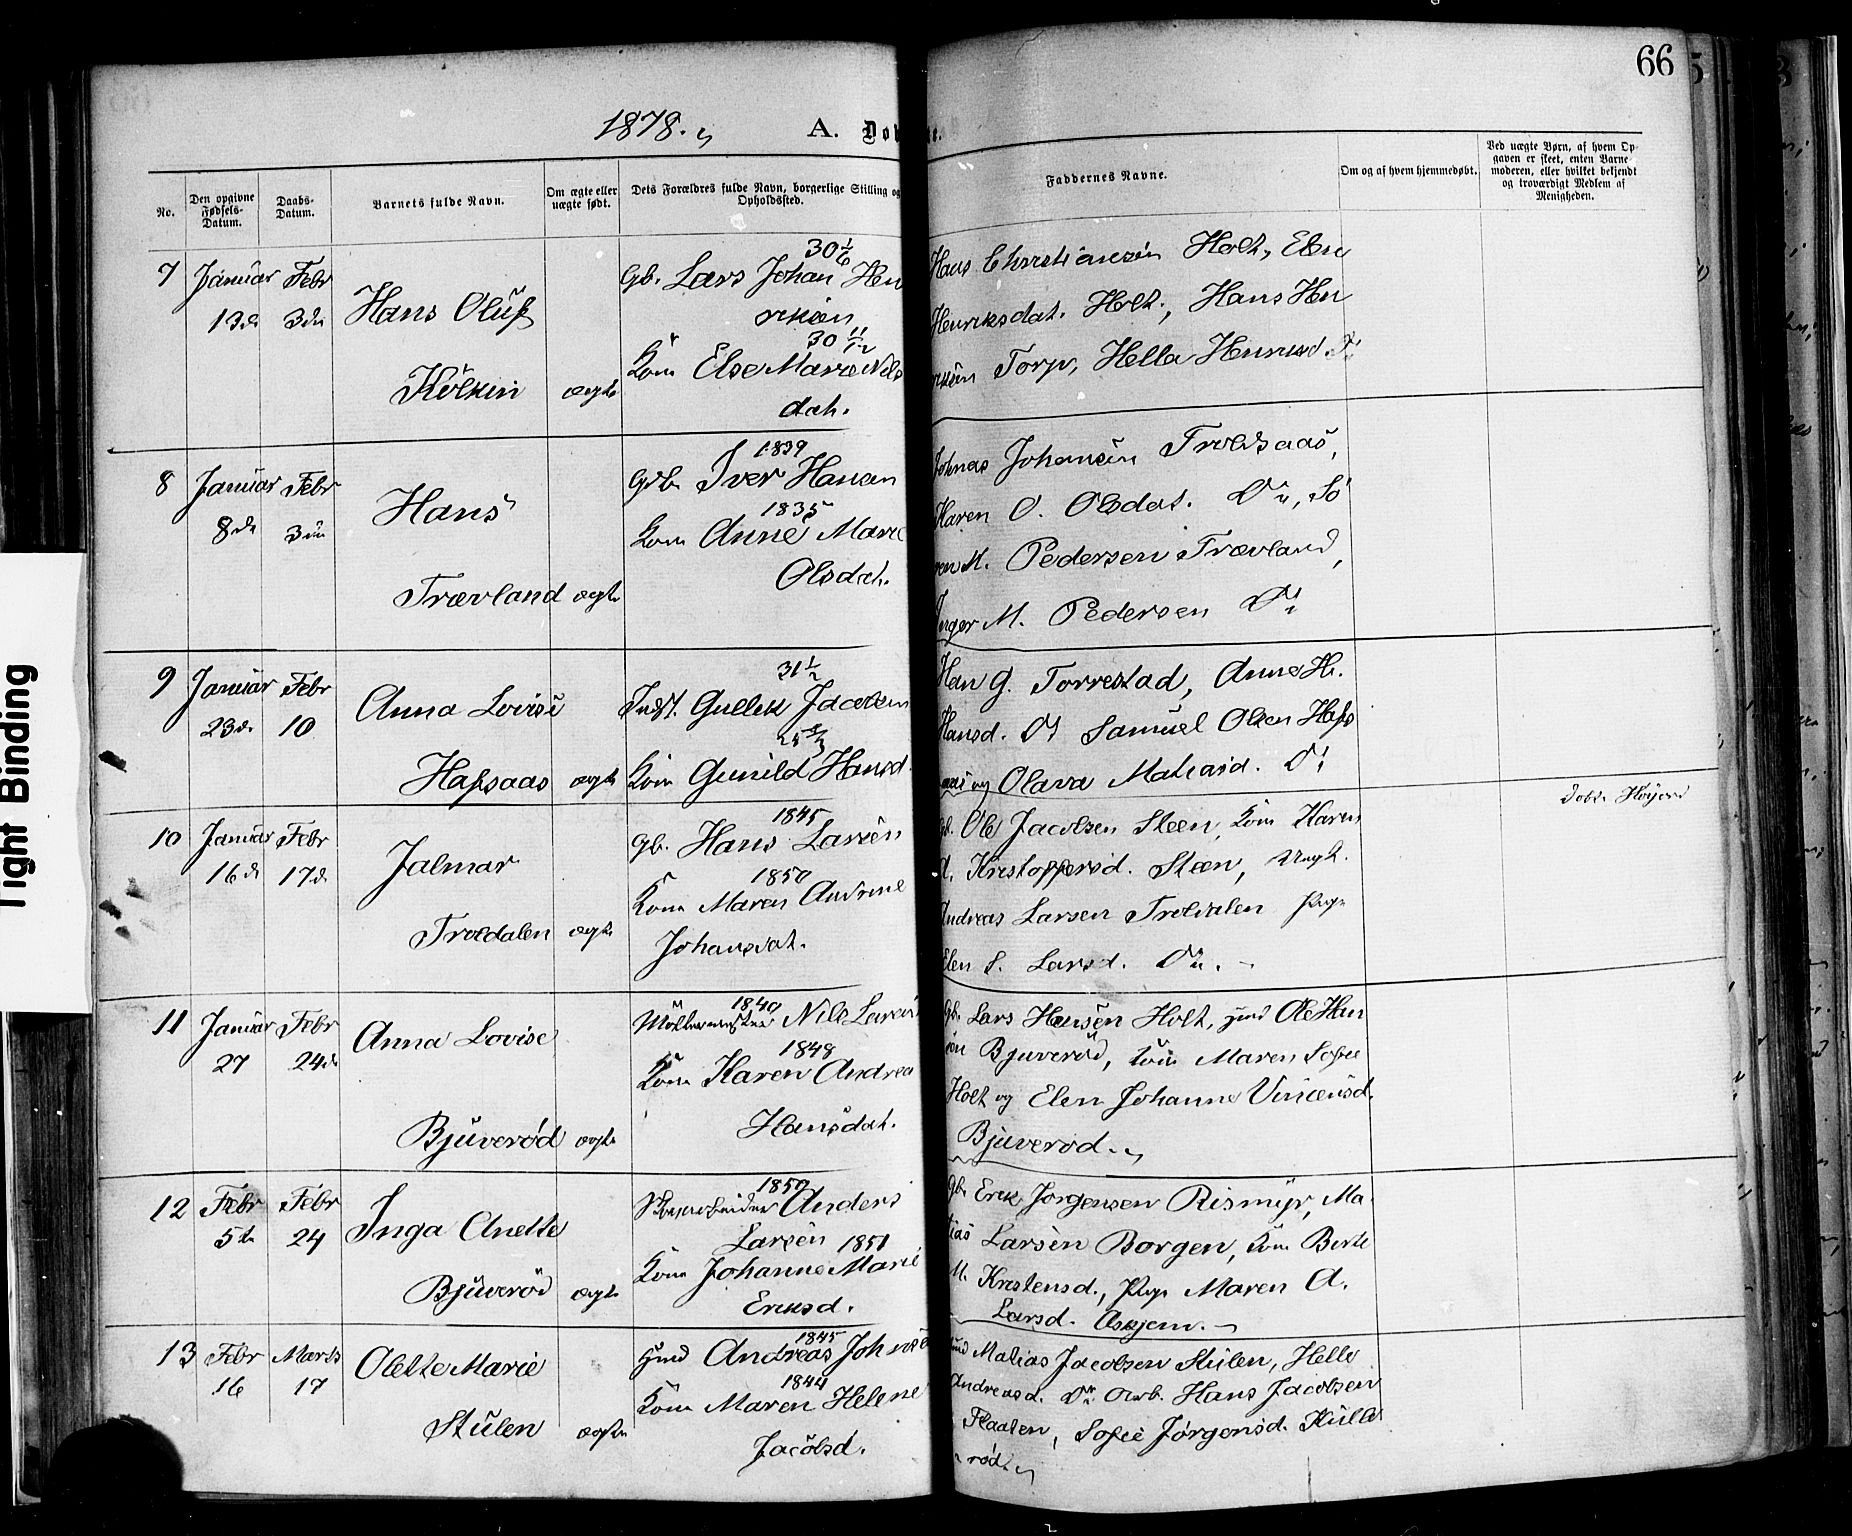 66
1878.
A. Døb
No.
Den opgivne Fødsels-Datum.
Daabs-Datum.
Barnets fulde Navn.
Om ægte eller uægte født.
Dets Forældres fulde Navn, borgerlige Stilling og Opholdssted.
Faddernes Navne.
Om og af hvem hjemmedøbt.
Ved uægte Børn, af hvem Op-
gaven er skeet, enten Barne-
moderen, eller hvilket bekjendt
og troværdigt Medlem af
Menigheden.
7 Januar Febr
13de 3die
Hans Oluf
Kölkin ægte
30 1/6
Gb. Lars Johan Hen
riksen
30 11/12
Kone Else Marie Nils
dat.
Hans Christiansen Holt, Elen
Henriksdat. Holt, Hans Hen
riksen Torp, Hella Henriksd. Do
8 Januar Febr
8de 3die
Hans
Trævland ægte
1839
Gb. Iver Hansen
1835
Kone Anne Marie
Olsdat.
Johnas Johansen Troldsaas,
Karen O. Olsdat. Do, Sö
ren M. Pedersen Trævland,
Inger M. Pedersen Do
9 Januar Febr
23de 10
Anna Lovise
Hafsaas ægte
31 1/2
Indst. Gullik Jacobsen
Kone Gunild Hansd.
Han G. Torrestad, Anne H.
Hansd. Do Samuel Olsen Hafs
aas og Olava Matiasd. Do
10 Januar Febr
16de 17de
Jalmar
Troldalen ægte
1845
Gb. Hans Larsen
1850
Kone Maren Andrine
Johansdat.
Gb. Ole Jacobsen Steen, Kone Karen
Kristoffersd. Steen, Ungk.
Andreas Larsen Troldalen Pige
Elen S. Larsd. Do.
Døbt i Høijord
11 Januar Febr
27 24de
Anna Lovise
Bjuverød ægte
1840
Möllermester Nils Larsen
1848
Kone Karen Andrea
Hansdat.
Gb. Lars Hansen Holt, Ole Han
sen Bjuverød, Kone Maren Sofie
Holt og Elen Johanne Vincensd.
Bjuverød.
12 Febr Febr
5te 24
Inga Anette
Bjuverød ægte
1850
Anders
Larsen 1851
Kone Johanne Marie
Eriksd.
Gb. Erik Jørgensen Rismyr, Ma
tias Larsen Borgen, Kone Berte
M. Kristensd., Pige Maren A.
Larsd. Askjem.
13 Febr Marts
16 17
Olette Marie
Stulen ægte
1845
Andreas Johnsen
1844
Kone Maren Helene
Jacobsd.
Matias Jacobsen Stulen, Helle
Andreasd. Do Arb. Hans Jacobsen
Flaaten, Sofie Jørgensd. Kulle
rød.
Tight Binding